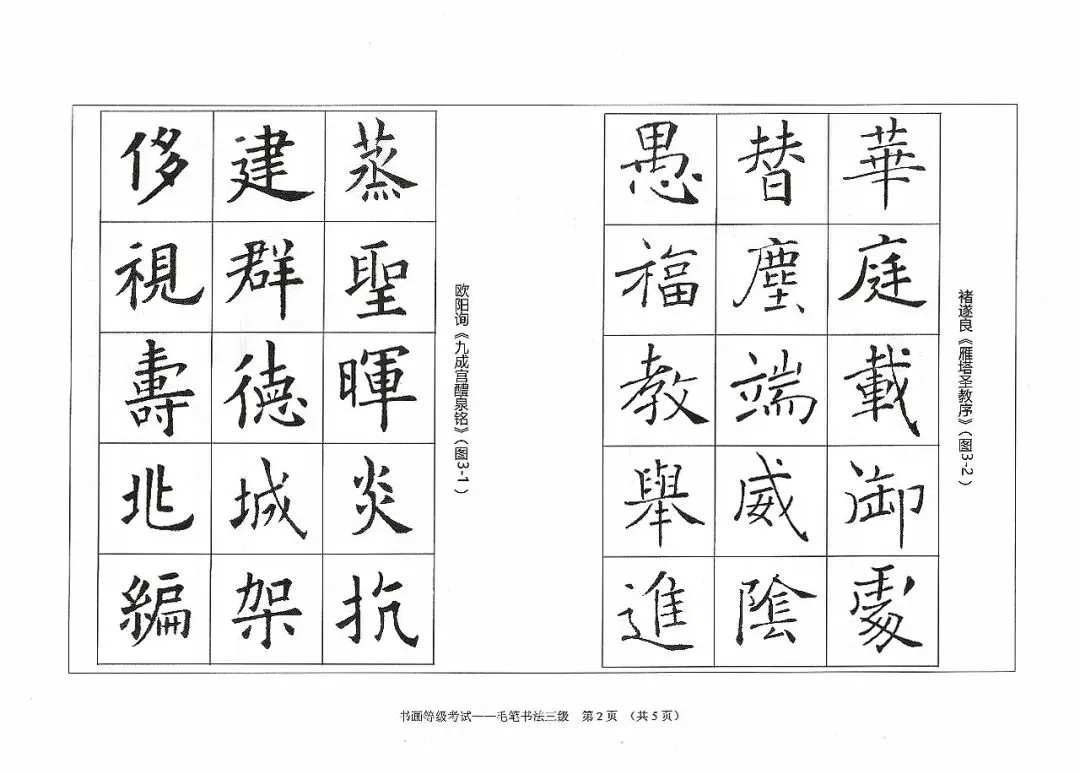 欧阳询《九成宫醴泉铭》(图3-1)
蒸聖暉炎抗
建群德城架
侈視壽兆編
褚遂良《雁塔圣教序》(图3-2)
華庭載御
替塵端威陰
愚福教舉進
书画等级考试——毛笔书法三级 第2页 (共5页)